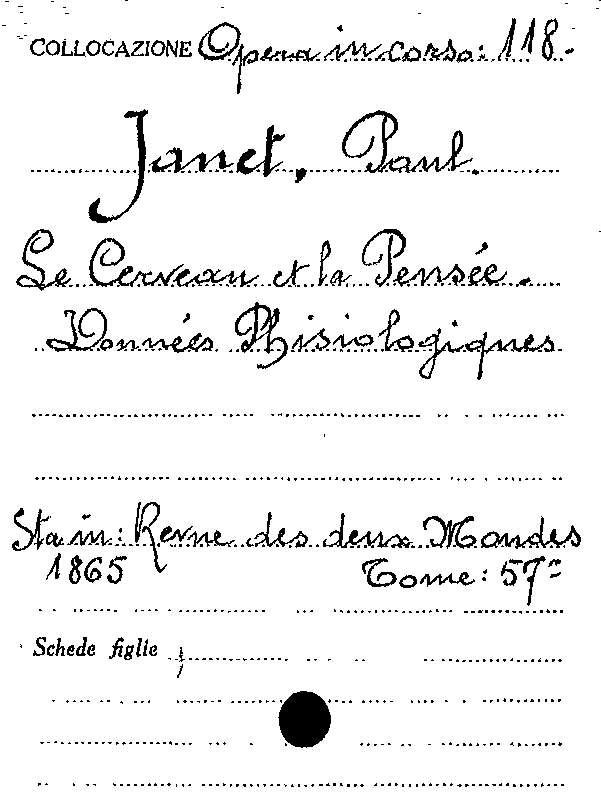 COLLOCAZIONE Opera in corso: 118.
Janet, Paul.
Le Cerveau et la Pensée.
Données Phisiologiques
Sta in: Revue des deux Mondes
1865 Tome: 57=
Schede figlie